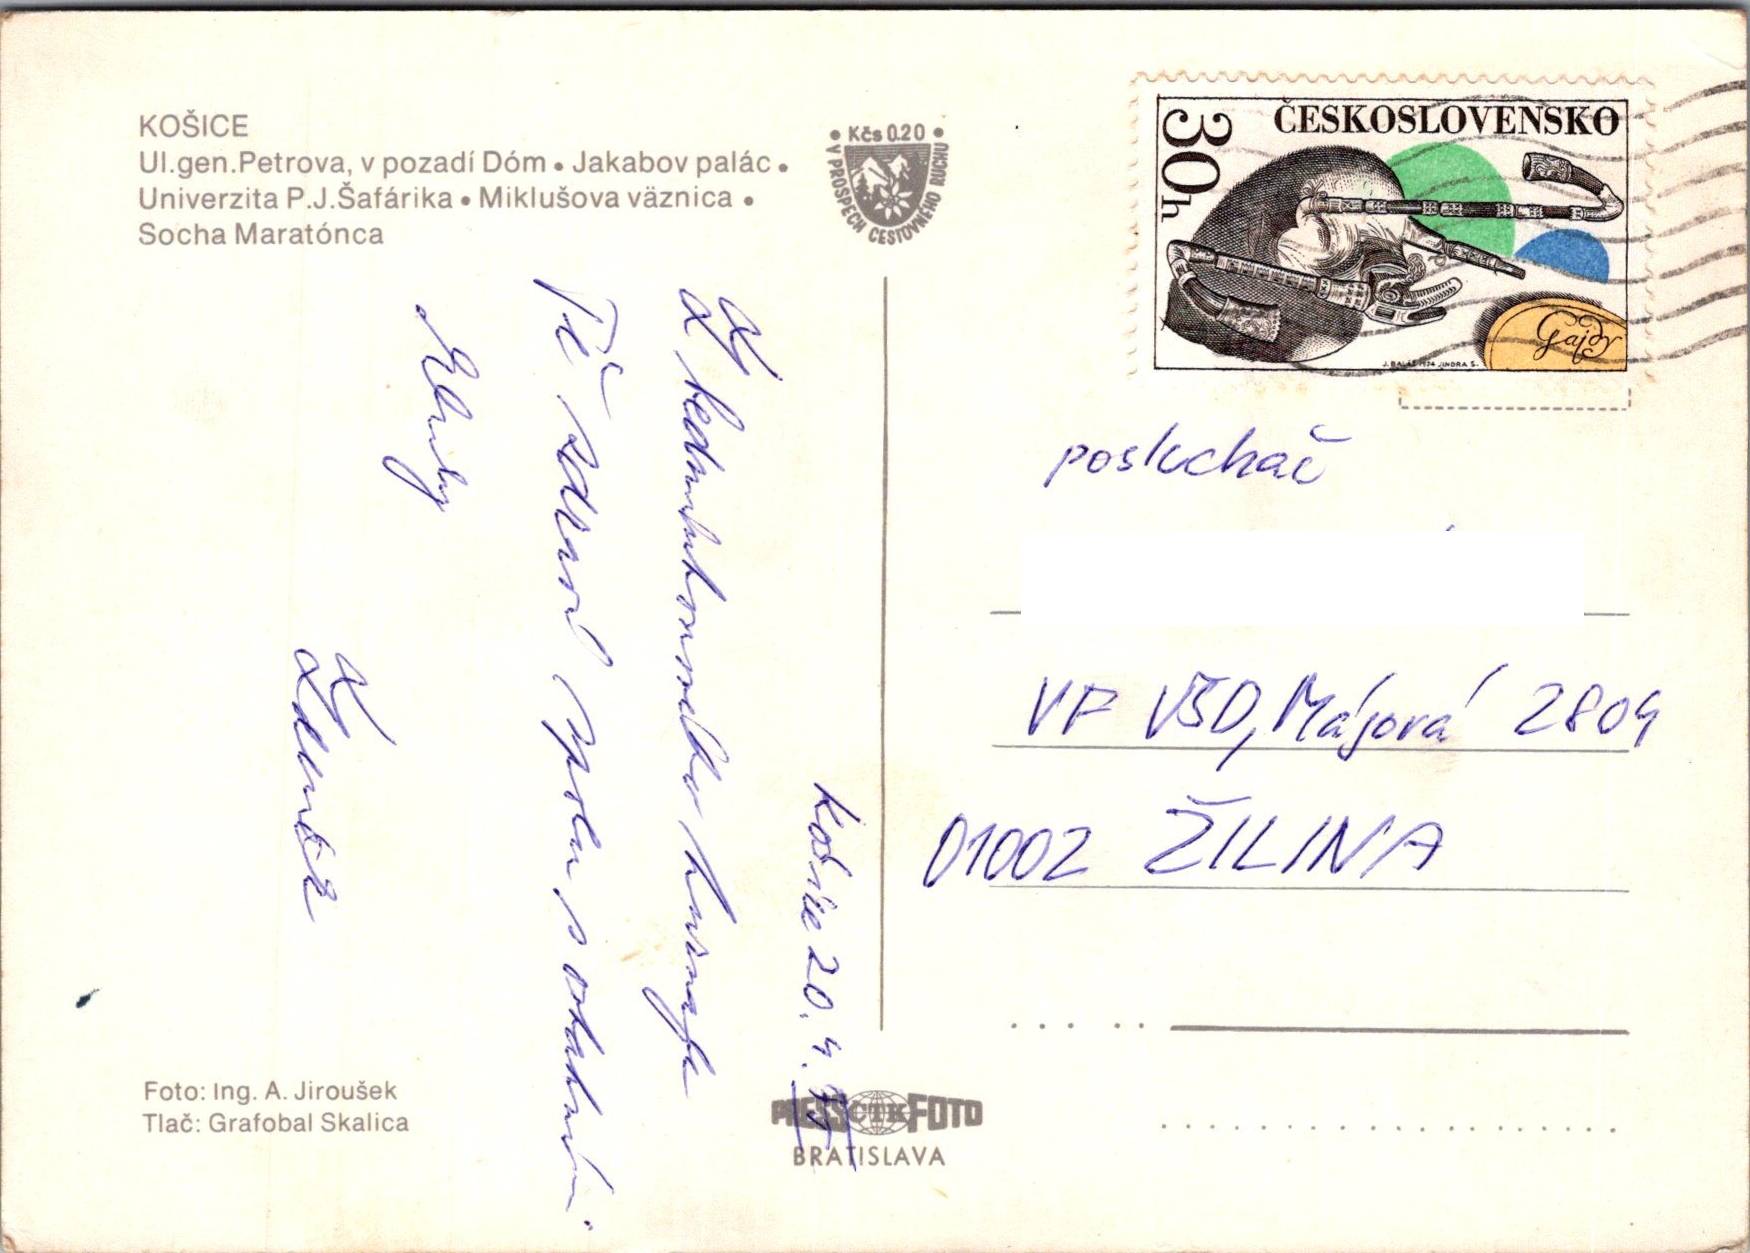 KOŠICE
Ul.gen.Petrova, v pozadí Dóm • Jakabov palác •
Univerzita P.J.Šafárika • Miklušova väznica •
Socha Maratónca
• Kčs 0.20 •
V PROSPECH CESTOVNÉHO RUCHU
30h
ČESKOSLOVENSKO
Gajdy
J. BALÁŽ 1974 JINDRA S.
Košice 20. 4. 75
Z
Tě zdraví spolu s ostatními
Zdeněk
posluchač
VF VŠD, Májová 2809
01002 ŽILINA
Foto: Ing. A. Jiroušek
Tlač: Grafobal Skalica
PRESSČTKFOTO
BRATISLAVA